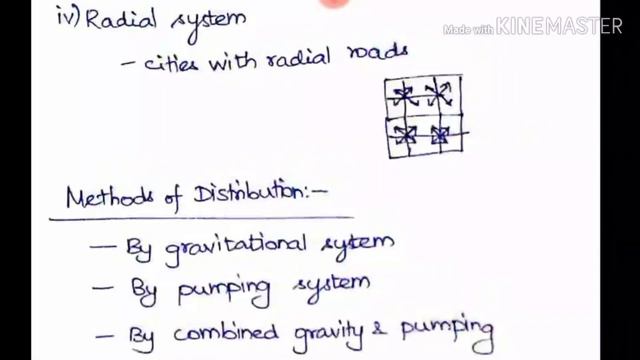 iv) Radial system
Made with KINEMASTER
- cities with radial roads
Methods of Distribution:-
- By gravitational sytem
- By pumping system
- By combined gravity & pumping